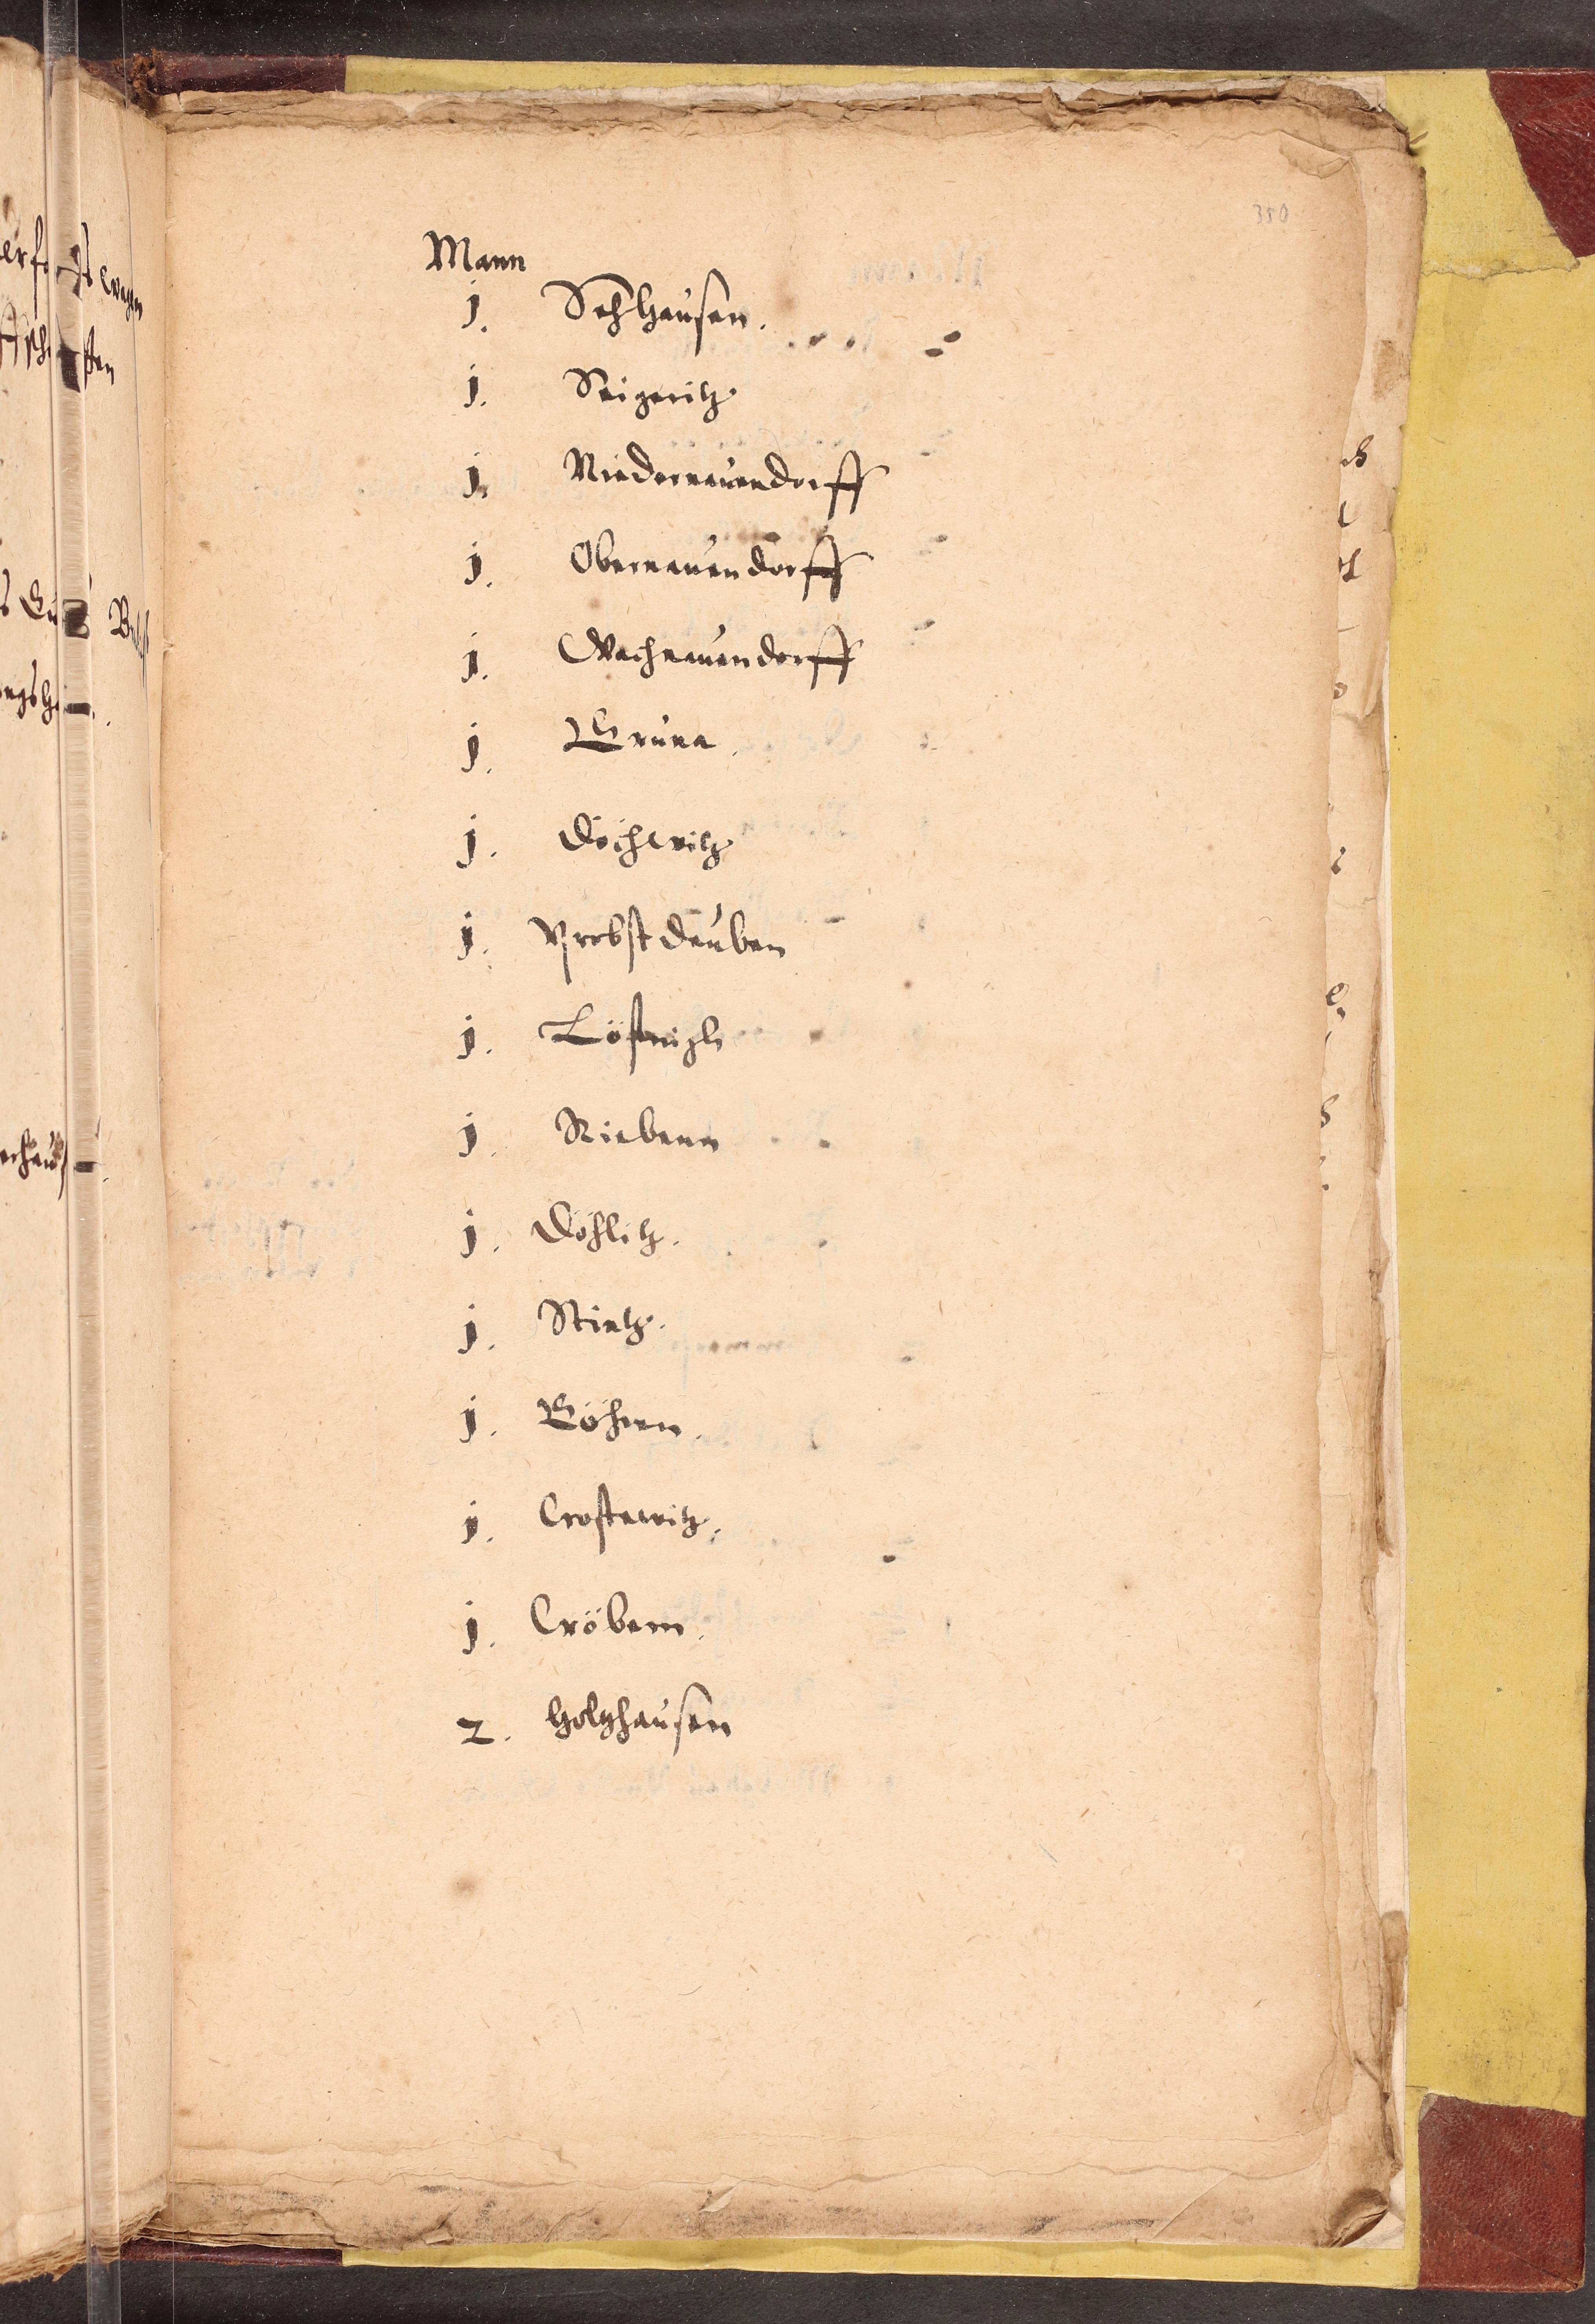 350
Mann
j. Sehhausen.
j. Seigeritz
j. Niedernauendorff
j. Obernauendorff
j. Wachnauendorff
j. Gruna.
j. Döchwitz
j. Probstdeuben
j. Lößnigk
j. Riebenn
j. Döhlitz.
j. Stietz.
j. Göhren.
j. Crostewitz.
j. Cröbern.
2. Holtzhausen